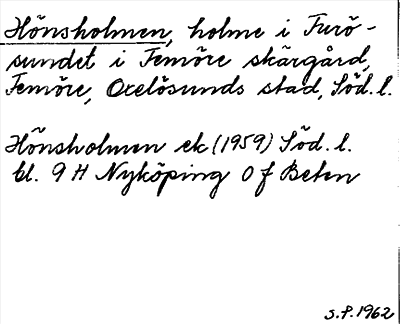 Hönsholmen, holme i Furö-
sundet i Femöre skärgård,
Femöre, Oxelösunds stad, Söd. l.
Hönsholmen ek (1959) Söd. l.
bl. 9 H Nyköping 0 f Beten
S.P. 1962